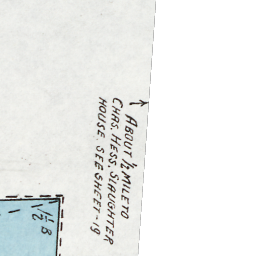 ABOUT 1/2 MILE TO
CHAS. HESS. SLAUGHTER
HOUSE. SEE SHEET-19
1 1/2 B